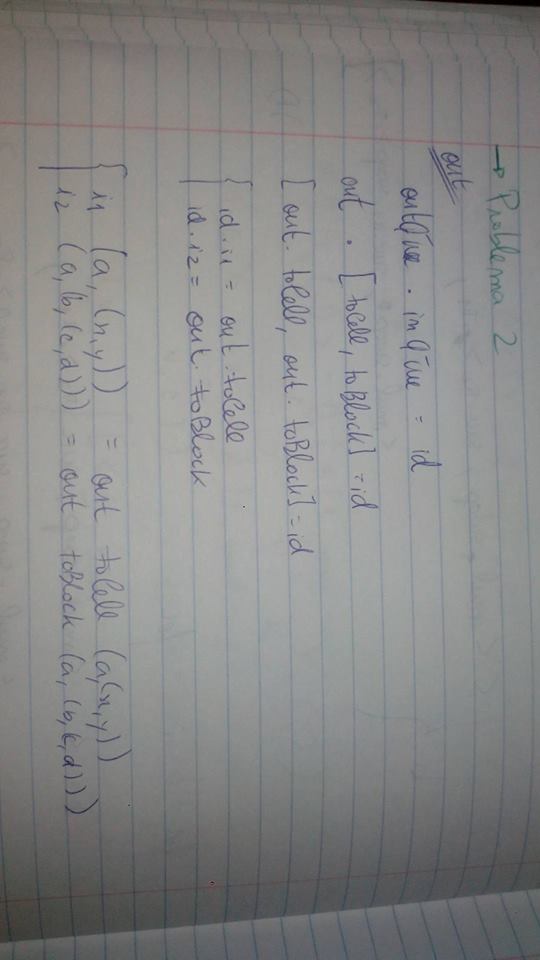 → Problema 2
out
outQTree . inQTree = id
out . [toCell, toBlock] = id
[out . toCell, out . toBlock] = id
id . i1 = out . toCell
id . i2 = out . toBlock
i1 (a, (x,y)) = out toCell (a,(x,y))
i2 (a,(b,(c,d))) = out toBlock (a, (b,(c,d)))